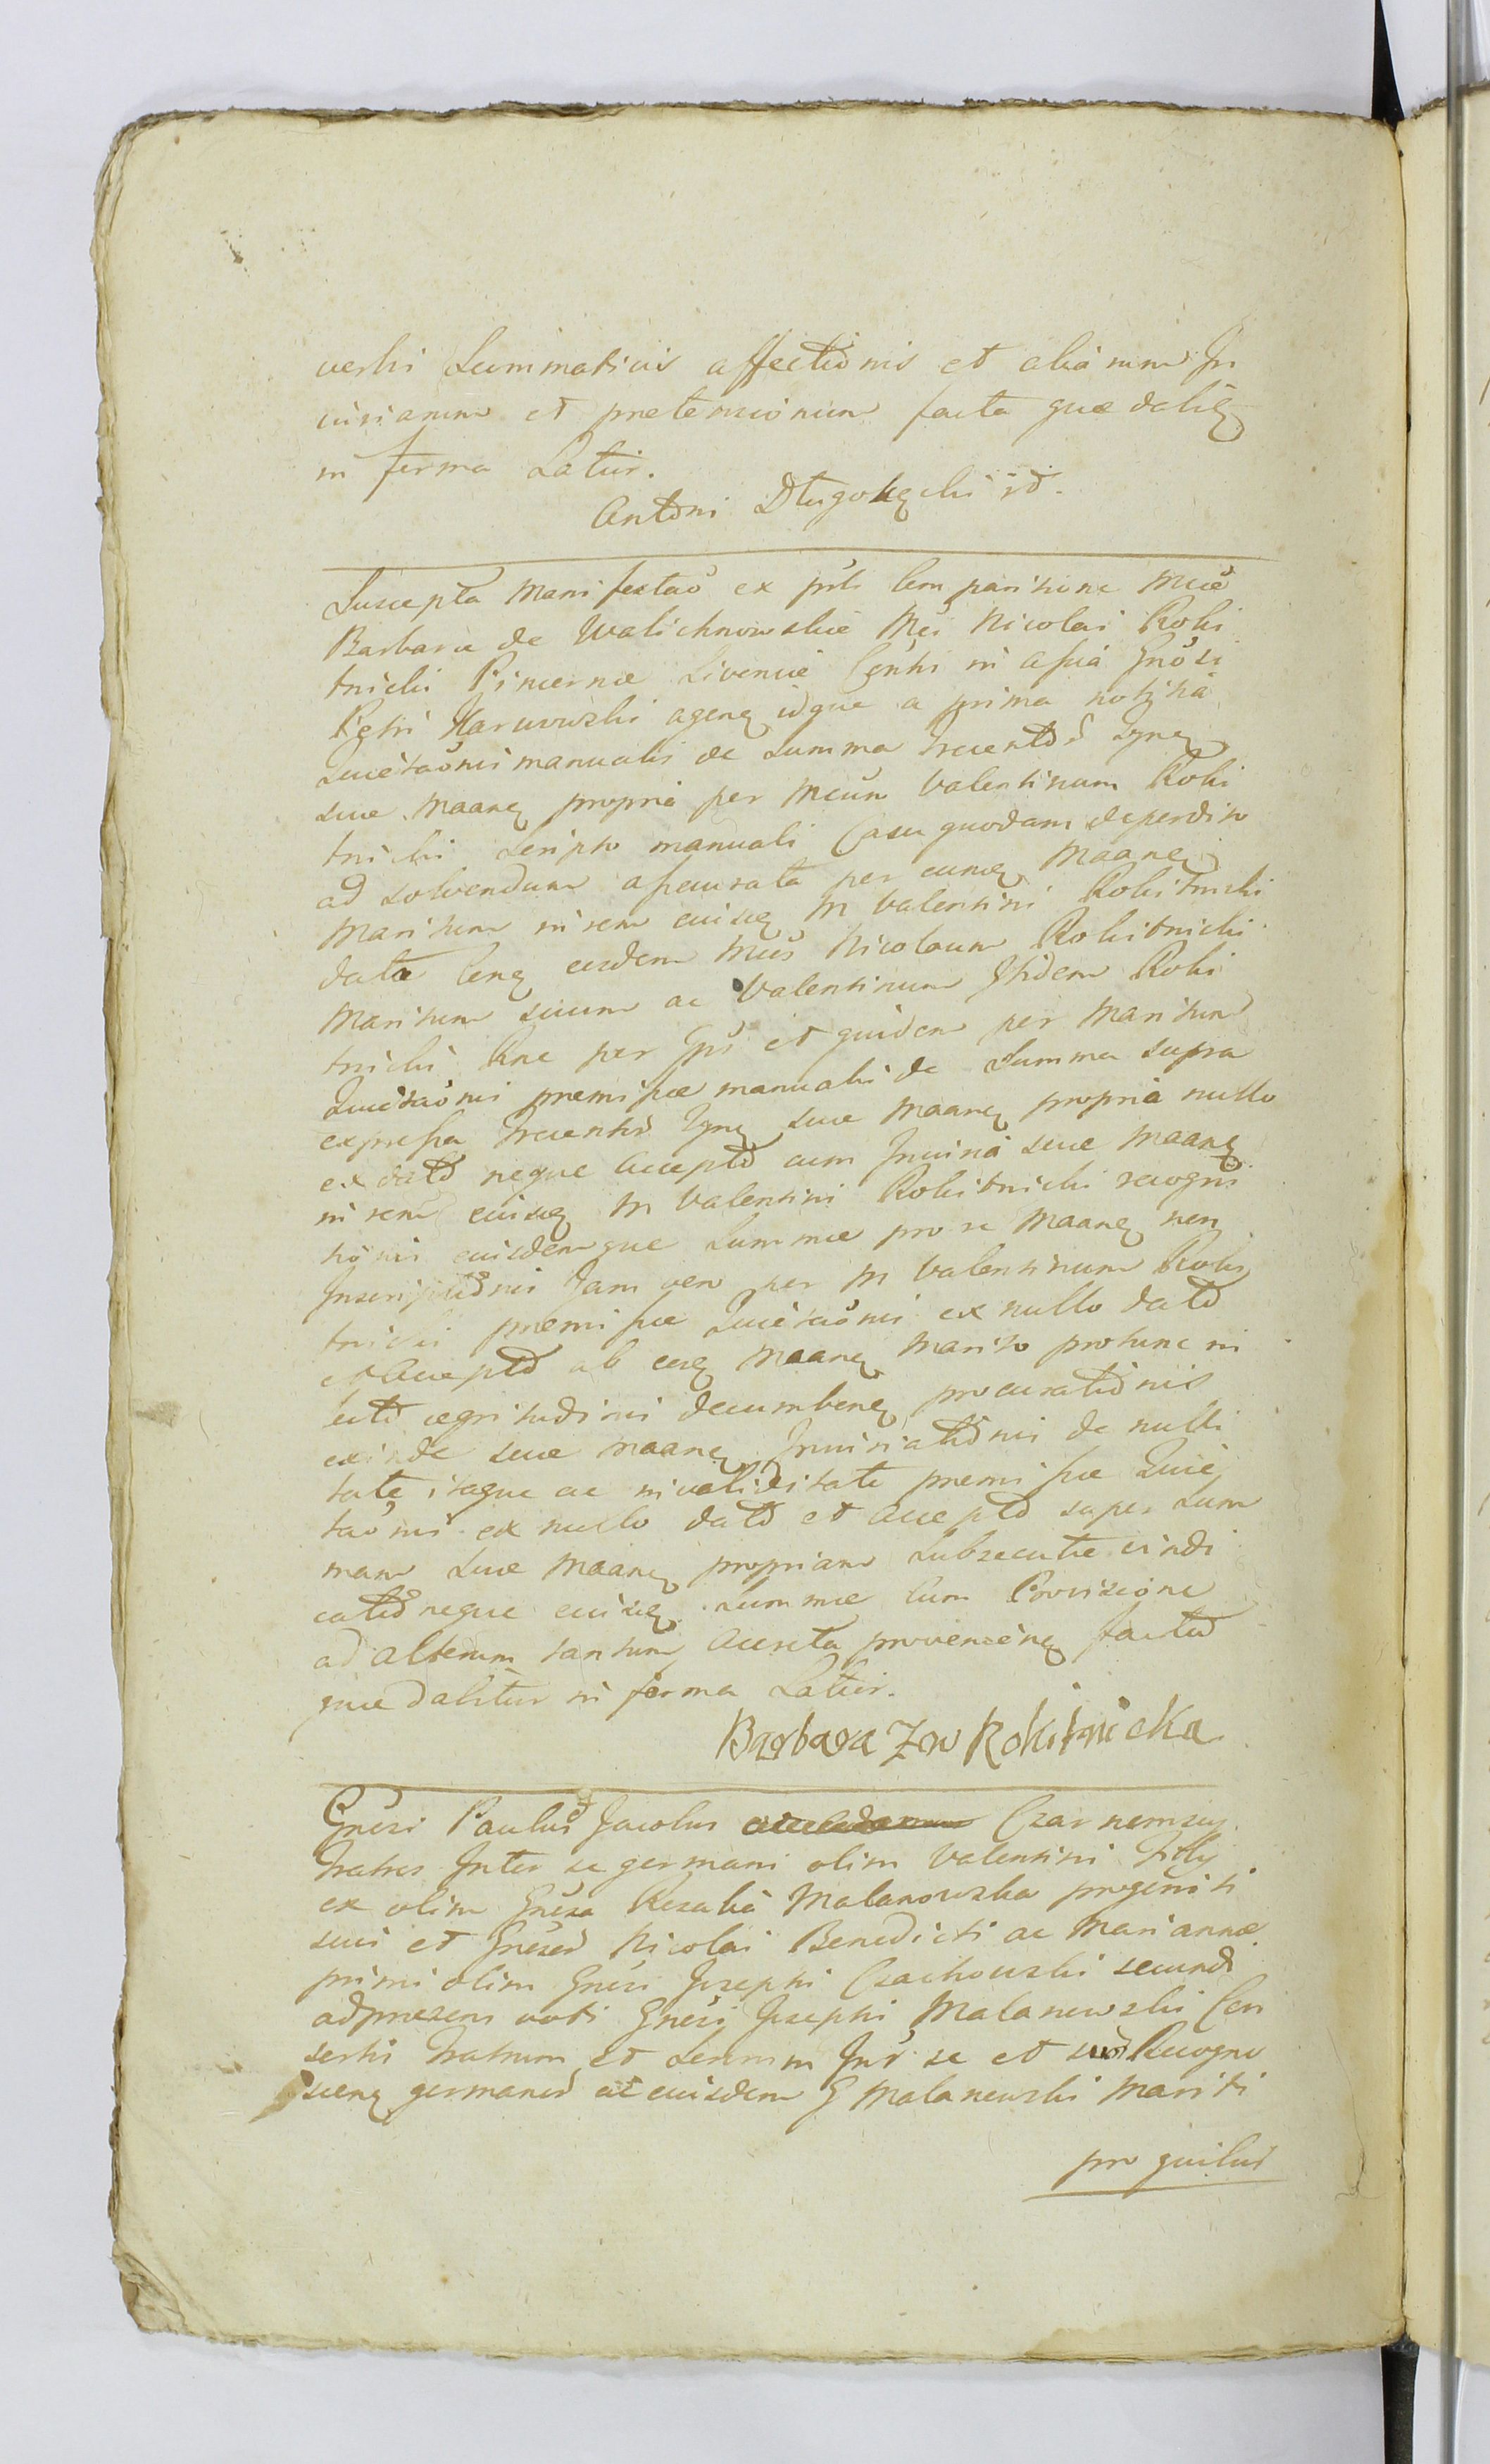 versi Summaticis affectionis et aliarum In
iuriarum et pretensionum facta quae dabitꝫ
in forma Latior.
Antoni Długołęcki
Suscepta Manifestaõ ex prti Comparitione Mcæ
Barbaræ de Walichnowskie Mci Nicolai Roki
tnicki Pincernæ Liveniæ Consti in assia Gnosi
Petri Karwowski agenꝫ idque a prima notitia
Quietaõnis manualis de Summa Trecentor Tynꝫ
suæ Maanꝫ propria per Mcum Valentinum Roki
tnicki Scripto manuali Casu quodam deperdito
ad solvendum assecurata per eunꝫ Maanꝫ
Maritum in rem eiusꝫ M Valentini Rokitnicki
data Conꝫ eosdem Mcos Nicolaum Rokitnicki
Maritum suum ac Valentinum Itidem Roki
tnicki hac per Ips et quidem per Maritum
Quietaõnis premissæ manualis de Summa supra
expressa Trecentor Tynꝫ suæ Maanꝫ propria nullo
ex dato neque Accepto cum Iniuria suæ Maanꝫ
in rem eiusꝫ M Valentini Rokitnicki recogni
tionis eiusdemque Summæ pro se Maanꝫ non
Inscriptionis Jam vero per M Valentinum Roki
tnicki premissæ Quietaõnis ex nullo dato
et Accepto ab eoꝫ Maanꝫ Marito protunc in
lecto ægritudinis decumbenꝫ procurationis
exinde suæ Maanꝫ Iniuriationis de nulli
tate itaque ac invaliditate premissæ Quie
taõnis ex nullo dato et Accepto super Sum
mam suæ Maanꝫ propriam Subsecutæ vindi
cationeque eiusꝫ Summæ Cum Provisione
ad alterum tantum Accreta provenienꝫ facta
quae dabitur in forma Latior.
Barbara Zw Rokitnicka
Gnesi Paulus Jacobus Czarnomscy
Fratres Inter se germani olim Valentini Filij
ex olim Gnesa Rosalia Malanowska progeniti
sui et Gnesor Nicolai Benedicti ac Mariannæ
primi olim Gnesi Josephi Czachowski secundi
adpræsens voti Gnesi Josephi Malanowski Con
sortis Fratrum et Sororum Intr se et suor Recogno
scenꝫ germanor ac eiusdem G Malanowski Mariti
pro quibus